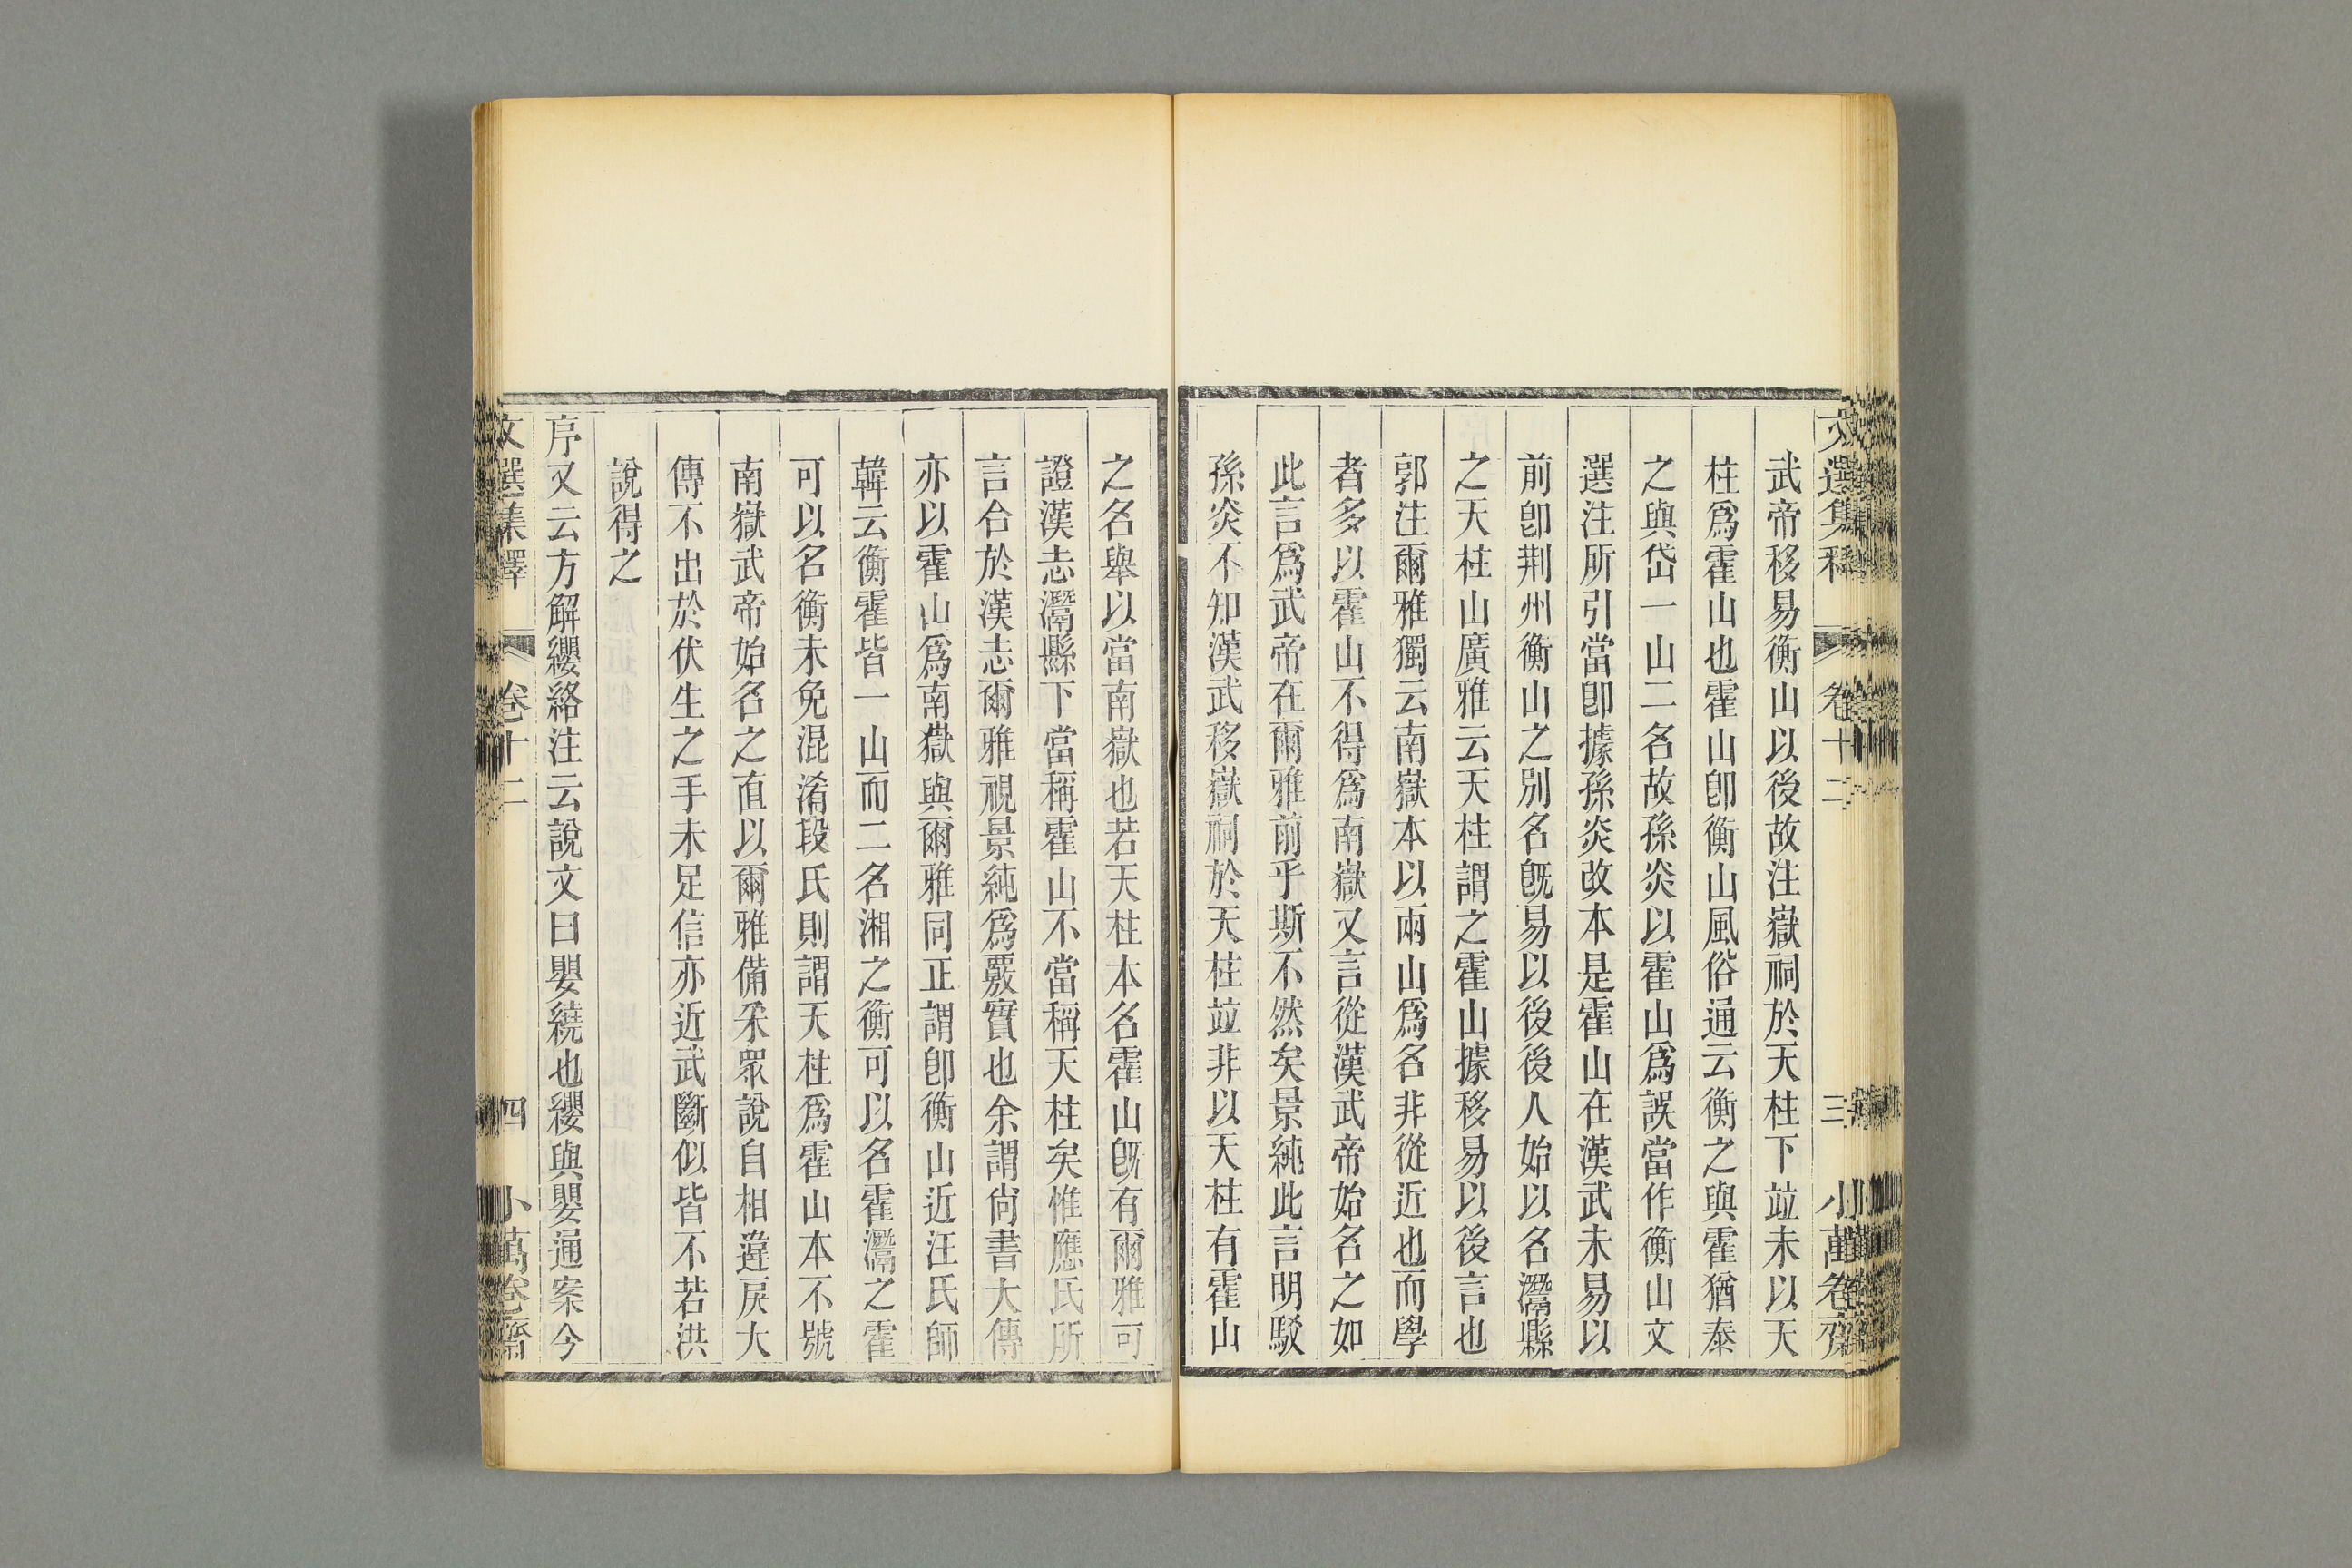 文選集釋 卷十二 三 小萬卷齋
武帝移易衡山以後故注嶽祠於天柱下竝未以天
柱爲霍山也霍山卽衡山風俗通云衡之與霍猶泰
之與岱一山二名故孫炎以霍山爲誤當作衡山文
選注所引當卽據孫炎改本是霍山在漢武未易以
前卽荆州衡山之別名旣易以後後人始以名灊縣
之天柱山廣雅云天柱謂之霍山據移易以後言也
郭注爾雅獨云南嶽本以兩山爲名非從近也而學
者多以霍山不得爲南嶽又言從漢武帝始名之如
此言爲武帝在爾雅前乎斯不然矣景純此言明駁
孫炎不知漢武移嶽祠於天柱竝非以天柱有霍山
之名舉以當南嶽也若天柱本名霍山旣有爾雅可
證漢志灊縣下當稱霍山不當稱天柱矣惟應氏所
言合於漢志爾雅視景純爲覈實也余謂尙書大傳
亦以霍山爲南嶽與爾雅同正謂卽衡山近汪氏師
韓云衡霍皆一山而二名湘之衡可以名霍灊之霍
可以名衡未免混淆段氏則謂天柱爲霍山本不號
南嶽武帝始名之直以爾雅備采眾說自相違戾大
傳不出於伏生之手未足信亦近武斷似皆不若洪
說得之
序又云方解纓絡注云說文曰嬰繞也纓與嬰通案今
文選集釋 卷十二 四 小萬卷齋